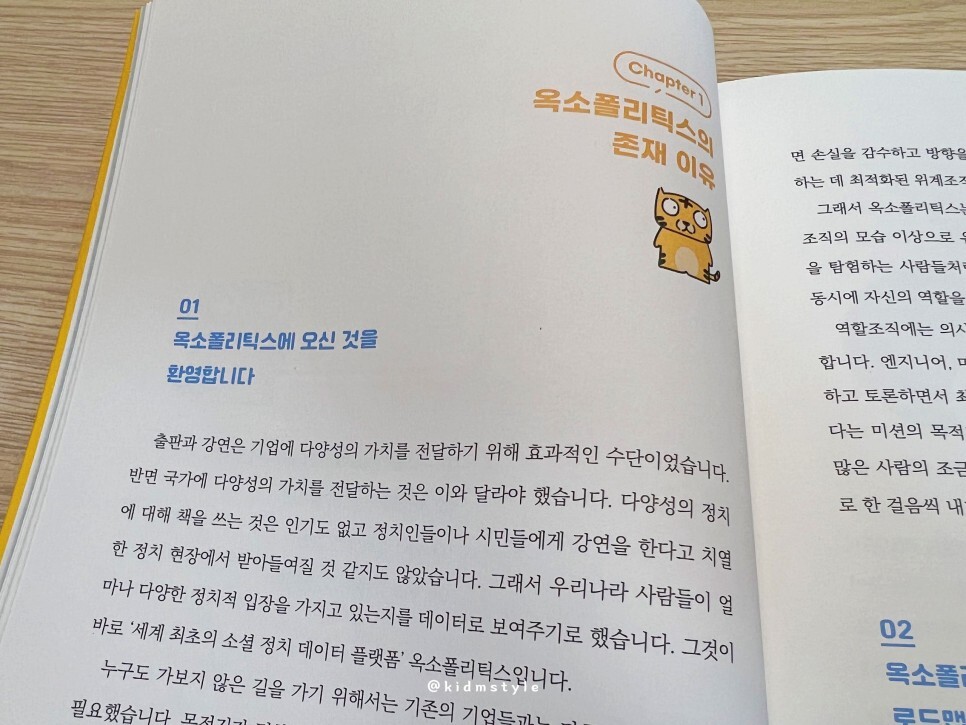 Chapter 1
옥소폴리틱스의
존재 이유
01
옥소폴리틱스에 오신 것을
환영합니다
출판과 강연은 기업에 다양성의 가치를 전달하기 위해 효과적인 수단이었습니다.
반면 국가에 다양성의 가치를 전달하는 것은 이와 달라야 했습니다. 다양성의 정치
에 대해 책을 쓰는 것은 인기도 없고 정치인들이나 시민들에게 강연을 한다고 치열
한 정치 현장에서 받아들여질 것 같지도 않았습니다. 그래서 우리나라 사람들이 얼
마나 다양한 정치적 입장을 가지고 있는지를 데이터로 보여주기로 했습니다. 그것이
바로 ‘세계 최초의 소셜 정치 데이터 플랫폼’ 옥소폴리틱스입니다.
누구도 가보지 않은 길을 가기 위해서는 기존의 기업들과는
필요했습니다.
면 손실을 감수하고 방향을
하는 데 최적화된 위계조직
그래서 옥소폴리틱스는
조직의 모습 이상으로
을 탐험하는 사람들처럼
동시에 자신의 역할을
역할조직에는 의사
합니다. 엔지니어,
하고 토론하면서
다는 미션의 목적
많은 사람의 조금
로 한 걸음씩 내
02
옥소폴리
로드맵
@kidmstyle